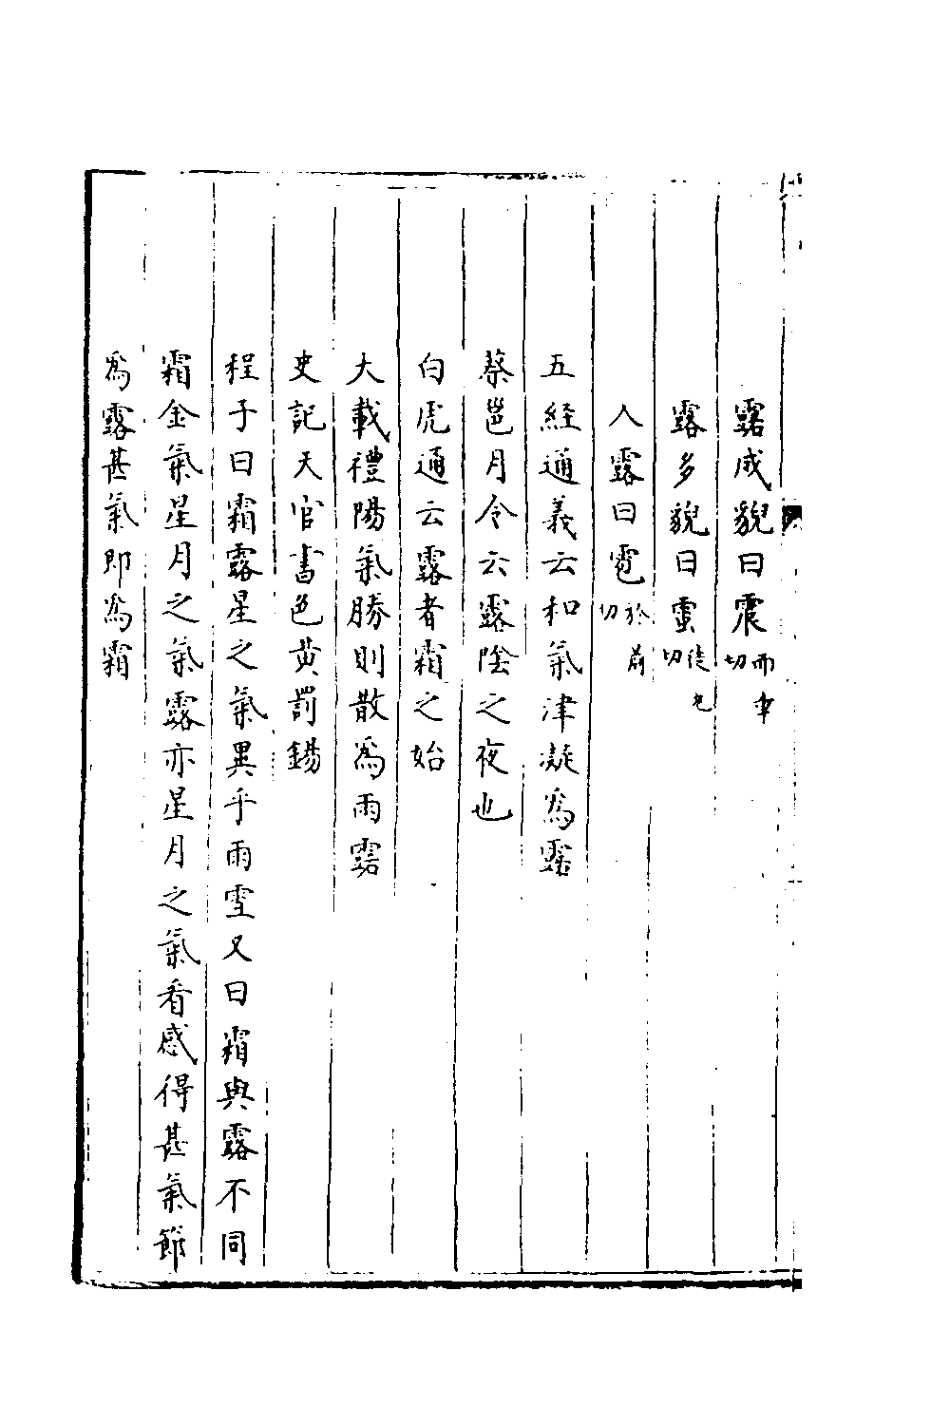 露成貌曰震而切
露多貌曰徒切
人露曰雹於切
五經通義云和氣津凝為露
蔡邕月令云露陰之夜也
白虎通云露者霜之始
大載禮陽氣勝則散為雨露
史記天官書色黃罰錫
程子曰霜露星之氣異乎雨雪又曰霜與露不同
霜金氣星月之氣露亦星月之氣看感得甚氣節
為露甚氣即為霜